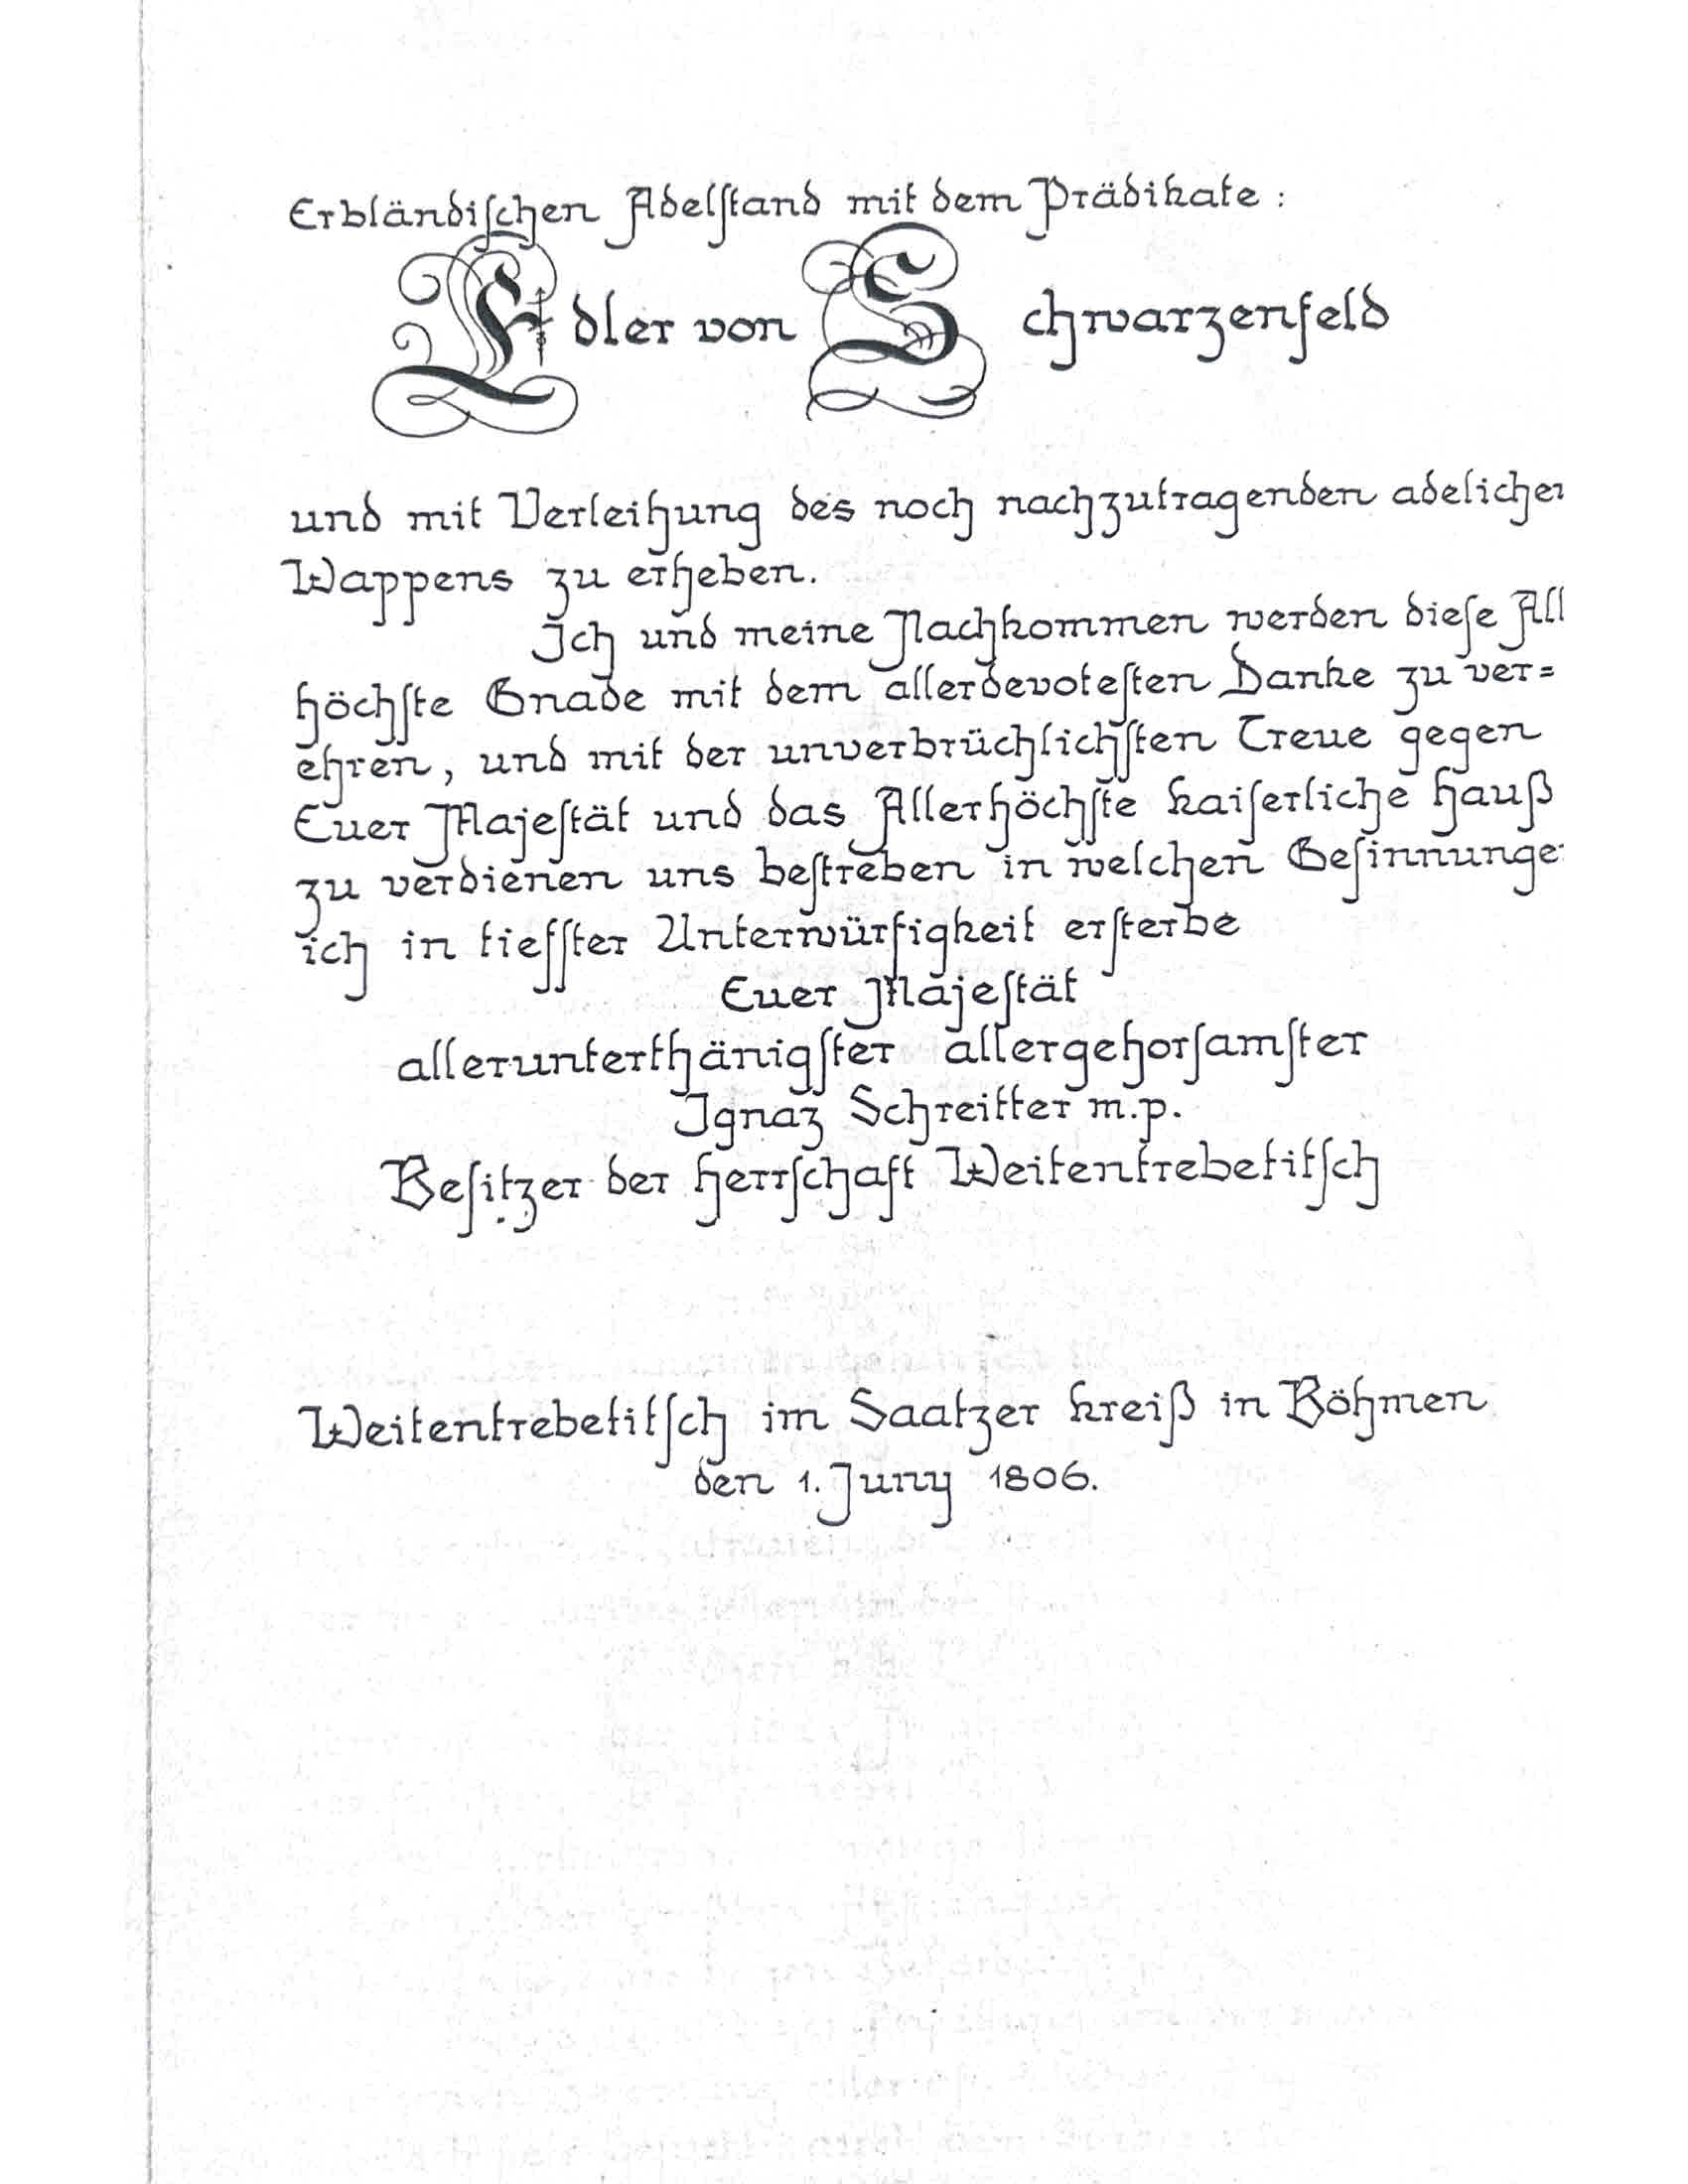 Erbländiſchen Adelſtand mit dem Prädikate:
Edler von Schwarzenfeld
und mit Verleihung des noch nachzutragenden adelichen
Wappens zu erheben.
Ich und meine Nachkommen werden dieſe All
höchſte Gnade mit dem allerdevoteſten Danke zu ver=
ehren, und mit der unverbrüchlichſten Treue gegen
Euer Majeſtät und das Allerhöchſte kaiſerliche Hauß
zu verdienen uns beſtreben in welchen Geſinnunge
ich in tiefſter Unterwürfigkeit erſterbe
Euer Majeſtät
allerunterthänigſter allergehorſamſter
Ignaz Schreitter m.p.
Beſitzer der Herrſchaft Weitentrebetitſch
Weitentrebetitſch im Saatzer Kreiß in Böhmen
den 1. Juny 1806.